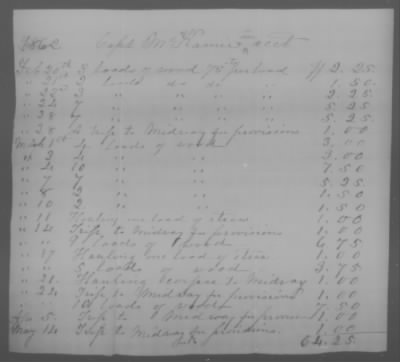 1862 Capt McKamie acct
Feb 20th 3 loads of wood 75 cts per load $ 2.25
" 21st 2 loads " " " 1.50
" 22d 3 " " " 2.25
" 24 7 " " " 5.25
" 28 7 " " " 5.25
" 28 A trip to Midway for provisions 1.00
Mch 1st 4 loads of wood 3.00
" 2 4 " " 3.00
" 4 10 " " 7.50
" 7 7 " " 5.25
" 8 2 " " 1.50
" 10 2 " " 1.50
" 11 Hauling one load of straw 1.00
" 14 Trip to Midway for provisions 1.00
" " 9 loads of wood 6.75
" 17 Hauling one load of straw 1.00
" " 5 loads of wood 3.75
" 21 Hauling to Midway 1.00
" 22 Trip to Midway for provisions 1.00
" " 10 loads of wood 7.50
5 Trip to Midway for provisions 1.00
May 14 Trip to Midway for provisions 1.00
64.25